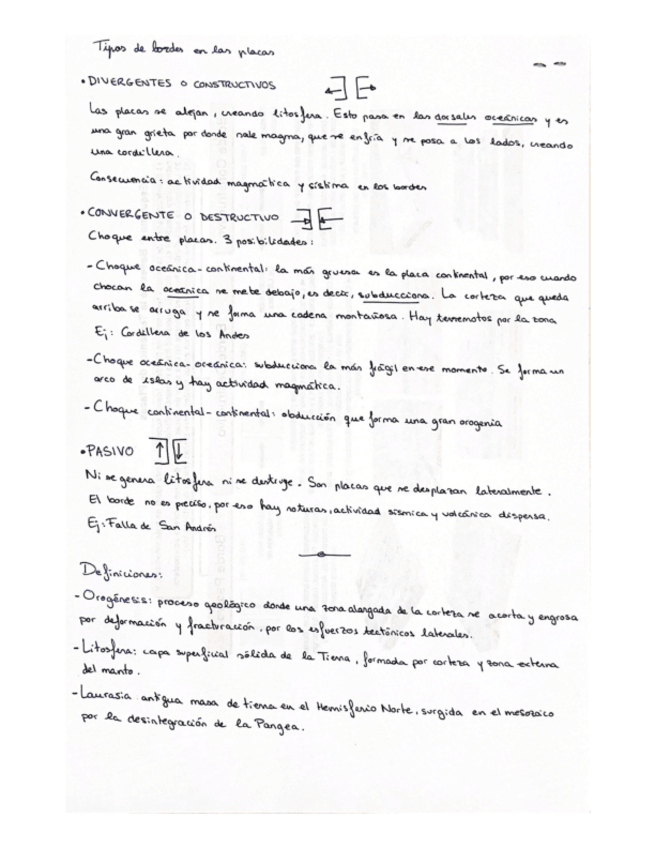 Tipos de bordes en las placas
• DIVERGENTES O CONSTRUCTIVOS
Las placas se alejan, creando litosfera. Esto pasa en las dorsales oceánicas y es
una gran grieta por donde sale magma, que se enfría y se posa a los lados, creando
una cordillera.
Consecuencia: actividad magmática y sísmica en los bordes
• CONVERGENTE O DESTRUCTIVO
Choque entre placas. 3 posibilidades:
- Choque oceánica-continental: la más gruesa es la placa continental, por eso cuando
chocan la oceánica se mete debajo, es decir, subducciona. La corteza que queda
arriba se arruga y se forma una cadena montañosa. Hay terremotos por la zona
Ej: Cordillera de los Andes
- Choque oceánica-oceánica: subducciona la más frágil en ese momento. Se forma un
arco de islas y hay actividad magmática.
- Choque continental-continental: obducción que forma una gran orogenia
• PASIVO
Ni se genera litosfera ni se destruye. Son placas que se desplazan lateralmente.
El borde no es preciso, por eso hay roturas, actividad sísmica y volcánica dispersa.
Ej: Falla de San Andrés
Definiciones:
- Orogénesis: proceso geológico donde una zona alargada de la corteza se acorta y engrosa
por deformación y fracturación, por los esfuerzos tectónicos laterales.
- Litosfera: capa superficial sólida de la Tierra, formada por corteza y zona externa
del manto.
- Laurasia: antigua masa de tierra en el Hemisferio Norte, surgida en el mesozoico
por la desintegración de la Pangea.